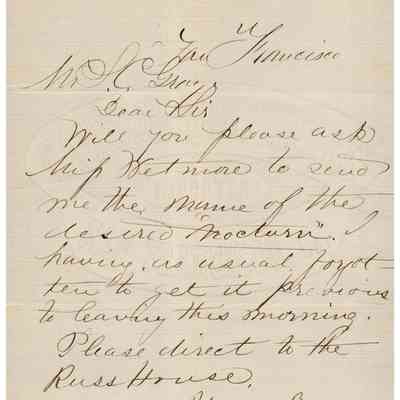 San Francisco
Mr. S. C. Gray,
Dear Sir
Will you please ask
Miss Wetmore to send
me the name of the
desired "Nocturn". I
having, as usual, forgot-
ten to get it previous
to leaving this morning.
Please direct to the
Russ House.